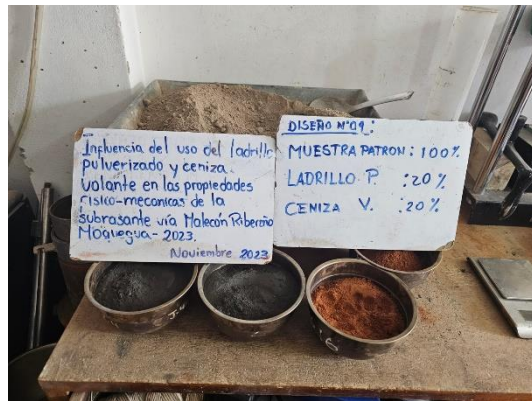 Influencia del uso del ladrillo
pulverizado y ceniza
volante en las propiedades
Físico-mecanicas de la
subrasante vía Malecón Ribereño
Moquegua- 2023.
Noviembre 2023
DISEÑO N°09:
MUESTRA PATRON: 100%
LADRILLO P. :20%
CENIZA V. :20%